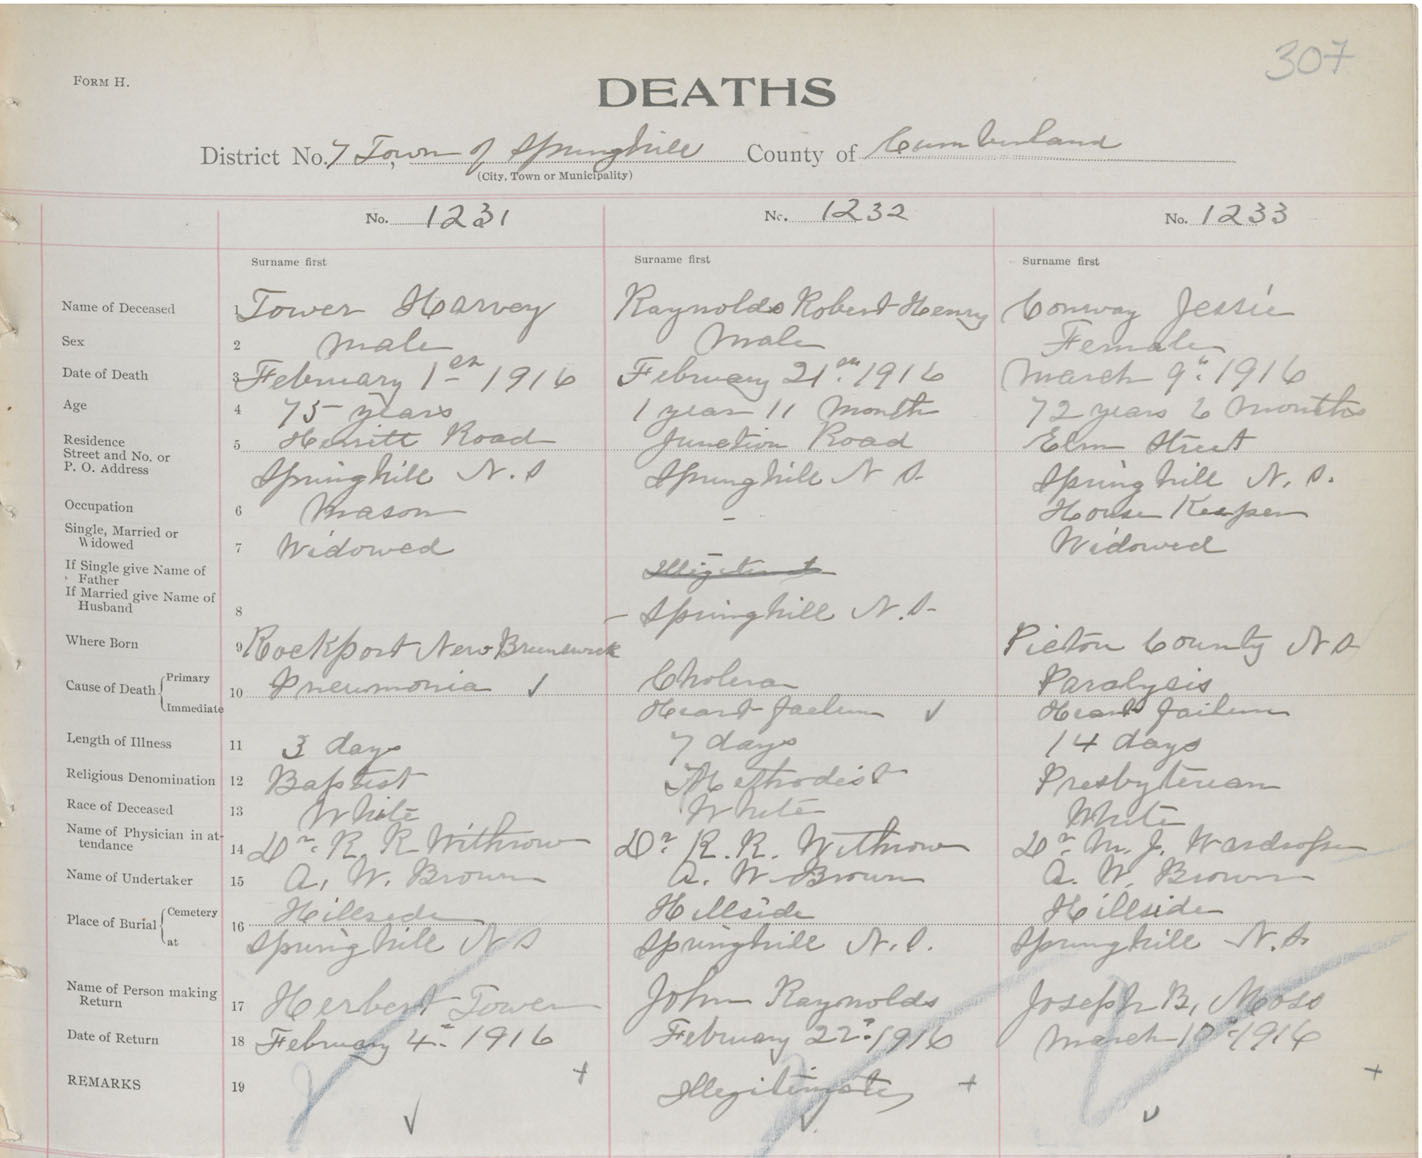 307
FORM H.
DEATHS
District No. 7 Town of Springhill County of Cumberland
(City, Town or Municipality)
No. 1231 No. 1232 No. 1233
Surname first Surname first Surname first
Name of Deceased 1 Tower Harvey Raynolds Robert Henry Conway Jessie
Sex 2 Male Male Female
Date of Death 3 February 1st 1916 February 21st 1916 March 9th 1916
Age 4 75 years 1 year 11 Month 72 years 6 Months
Residence 5 Road Junction Road Elm Street
Street and No. or
P. O. Address Springhill N.S Springhill N S. Springhill N.S.
Occupation 6 Mason – House Keeper
Single, Married or
Widowed 7 Widowed – Widowed
If Single give Name of
Father Illigitimate
If Married give Name of
Husband 8 – Springhill N.S.
Where Born 9 Rockport New Brunswick Pictou County N S
Cause of Death Primary 10 Pneumonia ✓ Cholera Paralysis
Immediate Heart failure ✓ Heart failure
Length of Illness 11 3 days 7 days 14 days
Religious Denomination 12 Baptist Methodist Presbyterian
Race of Deceased 13 White White White
Name of Physician in at-
tendance 14 Dr. R. R Withrow Dr. R. R. Withrow Dr. M. J. Wardrope
Name of Undertaker 15 A. W. Brown A. W. Brown A. W. Brown
Place of Burial Cemetery 16 Hillside Hillside Hillside
at Springhill N S Springhill N.S. Springhill N.S.
Name of Person making
Return 17 Herbert Tower John Raynolds Joseph B. Moss
Date of Return 18 February 4th 1916 February 22nd 1916 March 10th 1916
REMARKS 19 + Illegitimate + +
✓ ✓ ✓